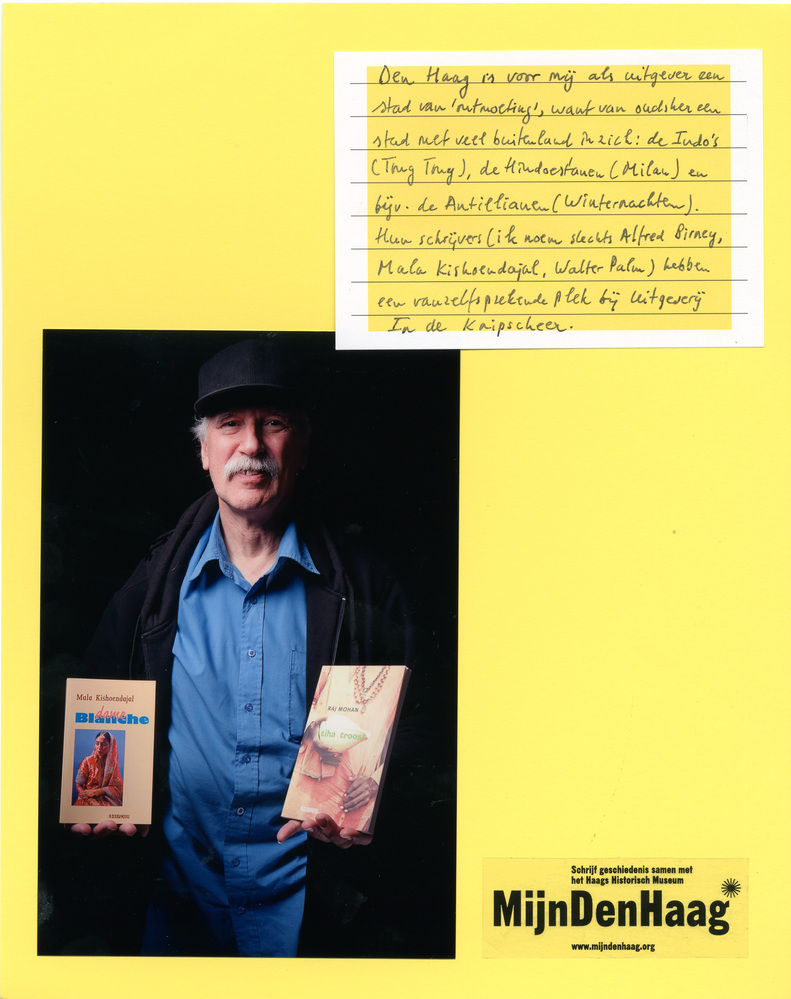 Den Haag is voor mij als uitgever een
stad van 'ontmoeting', want van oudsher een
stad met veel buitenland in zich: de Indo's
(Tong Tong), de Hindoestanen (Milan) en
bijv. de Antillianen (Winternachten).
Hun schrijvers (ik noem slechts Alfred Birney,
Mala Kishoendajal, Walter Palm) hebben
een vanzelfsprekende plek bij Uitgeverij
In de Knipscheer.
Mala Kishoendajal
dame
Blanche
RAJ MOHAN
tihá troost
Schrijf geschiedenis samen met
het Haags Historisch Museum
MijnDenHaag
www.mijndenhaag.org